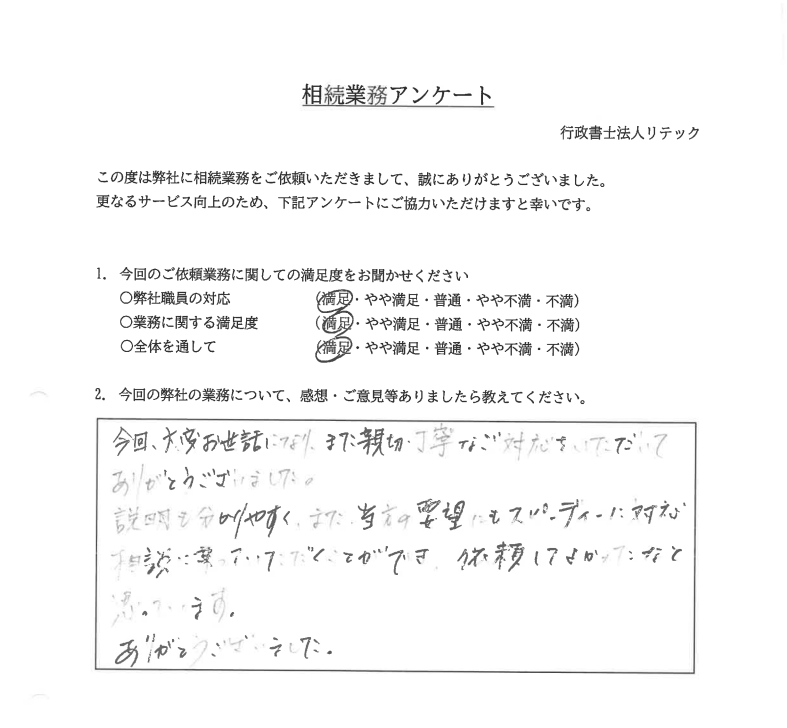 相続業務アンケート
行政書士法人リテック
この度は弊社に相続業務をご依頼いただきまして、誠にありがとうございました。
更なるサービス向上のため、下記アンケートにご協力いただけますと幸いです。
1. 今回のご依頼業務に関しての満足度をお聞かせください
○弊社職員の対応 (満足・やや満足・普通・やや不満・不満)
○業務に関する満足度 (満足・やや満足・普通・やや不満・不満)
○全体を通して (満足・やや満足・普通・やや不満・不満)
2. 今回の弊社の業務について、感想・ご意見等ありましたら教えてください。
今回、大変お世話になり、また親切・丁寧なご対応をいただいて
ありがとうございました。
説明も分かりやすく、また、当方の要望にもスピーディーに対応
相談に乗っていただくことができ、依頼してよかったなと
思っています。
ありがとうございました。